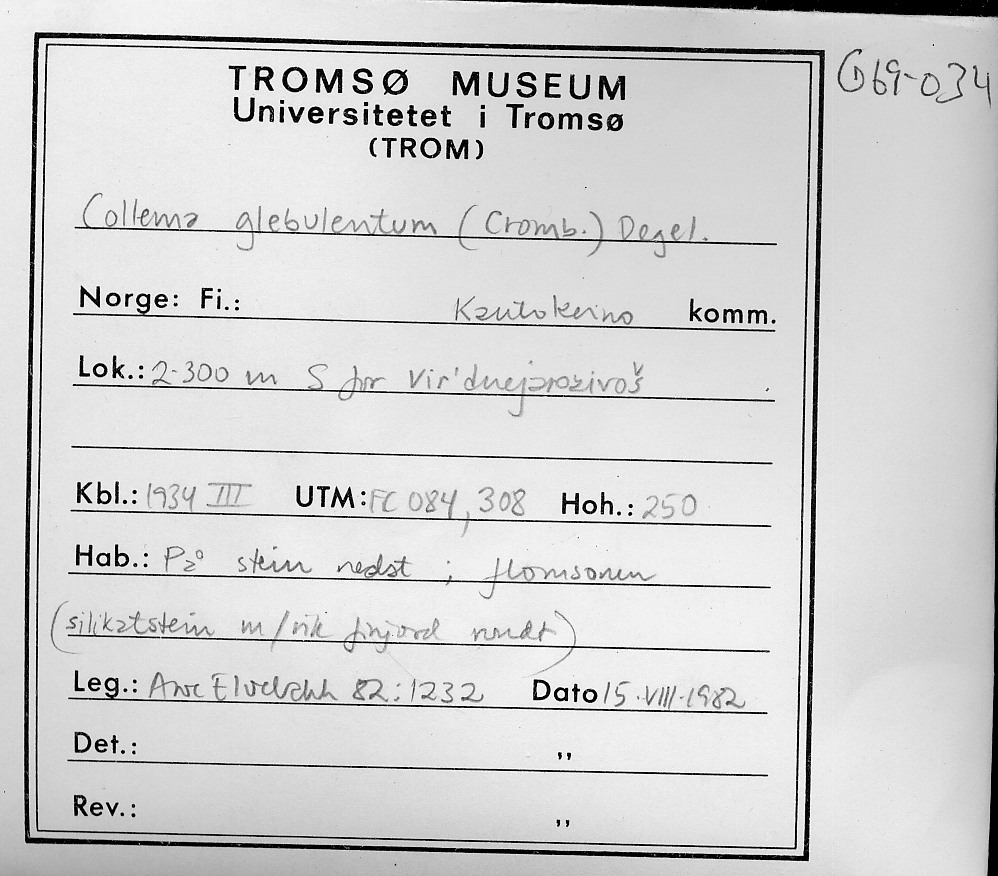 G69-034
TROMSØ MUSEUM
Universitetet i Tromsø
(TROM)
Collema glebulentum (Cromb.) Degel.
Norge: Fi.: Kautokeino komm.
Lok.: 2-300 m S for Vir'dnejavrzivoš
Kbl.: 1934 III UTM: FC 084, 308 Hoh.: 250
Hab.: På stein nedst i flomsonen
(silikatstein m/rik finjord rundt)
Leg.: Arve Elvebakk 82:1232 Dato 15.VIII.1982
Det.: ,,
Rev.: ,,